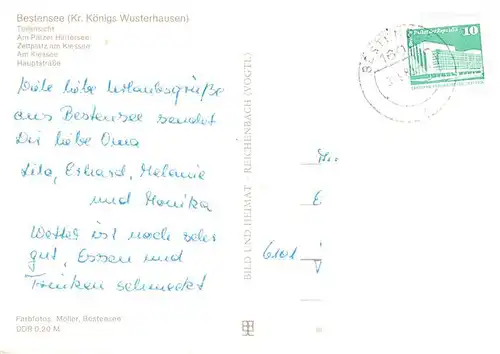 Bestensee (Kr. Königs Wusterhausen)
Teilansicht
Am Pätzer Hintersee
Zeltplatz am Kiessee
Am Kiessee
Hauptstraße
Viele liebe Urlaubsgrüße
aus Bestensee sendet
Dir liebe Oma
Lita, Erhard, Melanie
und Monika
Wetter ist noch sehr
gut, Essen und
Trinken schmeckt
Farbfotos: Möller, Bestensee
DDR 0,20 M
BILD UND HEIMAT · REICHENBACH (VOGTL)
BESTENSEE
10
6101